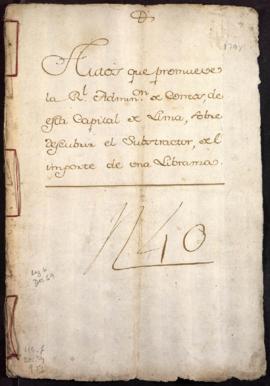 Autos que promueve
la Rl. Admin.on de Correos, de
esta Capital de Lima, sobre
descubrir el Substractor, del
importe de una Libransa.
N 40
Leg 6